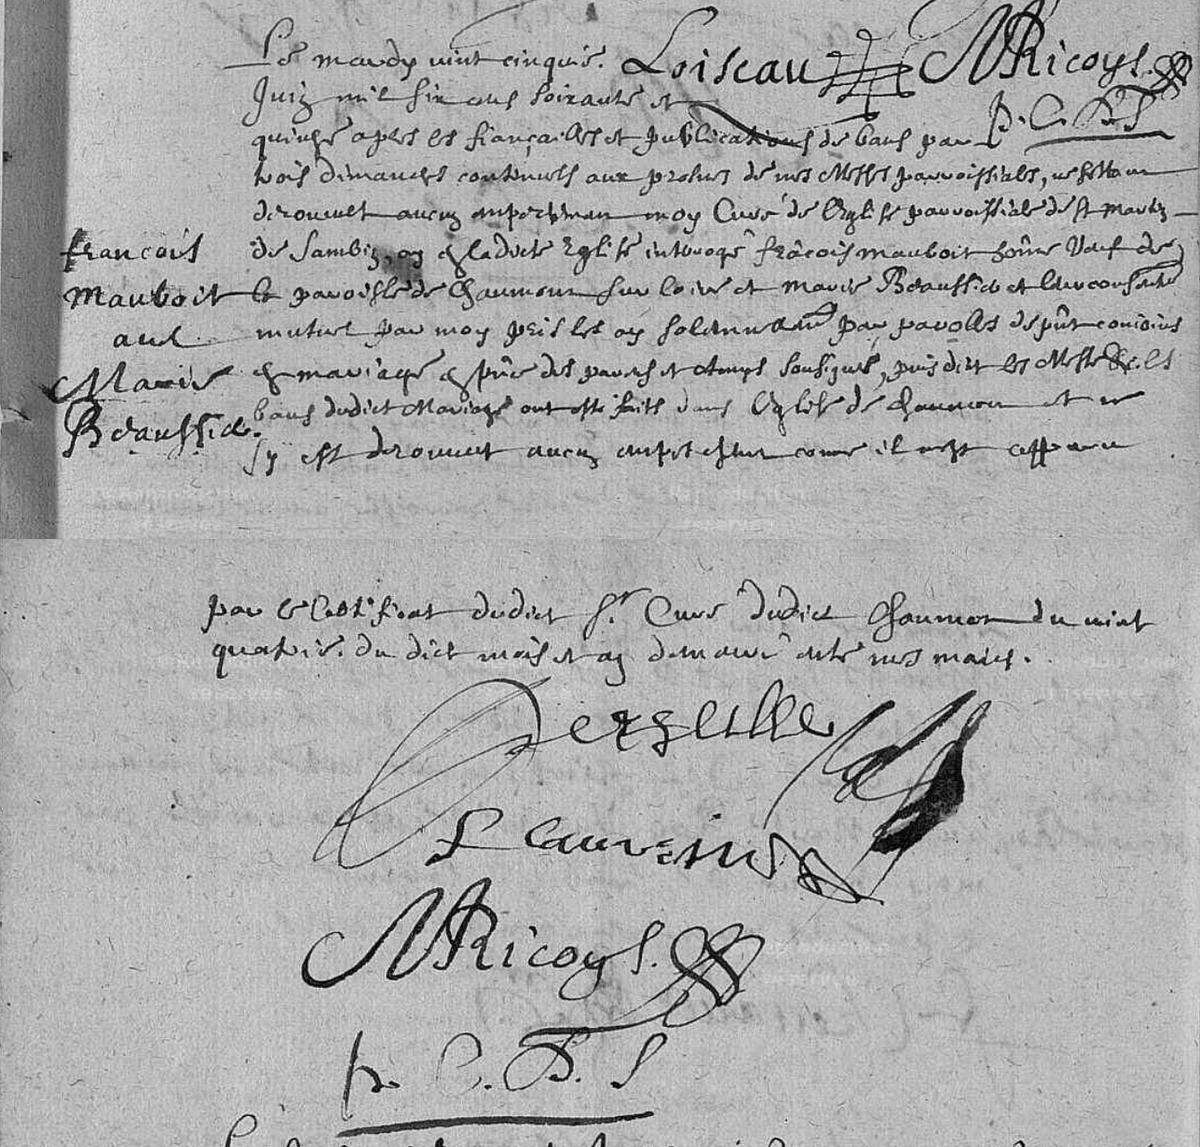 Le mardy vint cinquie. Loiseau MRicoys.
Juin mil six cens soixante et p. C. D. S
quinze apres les fiançailles et publications de bans par
trois dimanches continuels aux prosnes de nos Messes parroissiales, ne s'estant
descouvert aucun empeschemen moy Curé de l'Eglise parroissiale de St Martin
françois
de Sambin, ay en ladicte Eglise interrogé frācois mauboit hōme veuf de
mauboit
la paroisse de Chaumont sur loire et marie Beaussie et leur consentemt
avec
mutuel par moy pris les ay solennellemt par parolles de pñt conjoins
Marie
en mariage en pñce des parens et Amys soussignés, puis dict les Messe &c. les
Beaussie.
bans dudict Mariage ont esté faits dans l'Eglise de chaumon et ne
s'y est descouvert aucun empeschemt comme il nous est apparu
par le Certificat dudict Sr. Curé dudict Chaumont du vint
quatrie. du dict mois et an demeuré entre nos mains.
MRicoys.
p. C. D. S